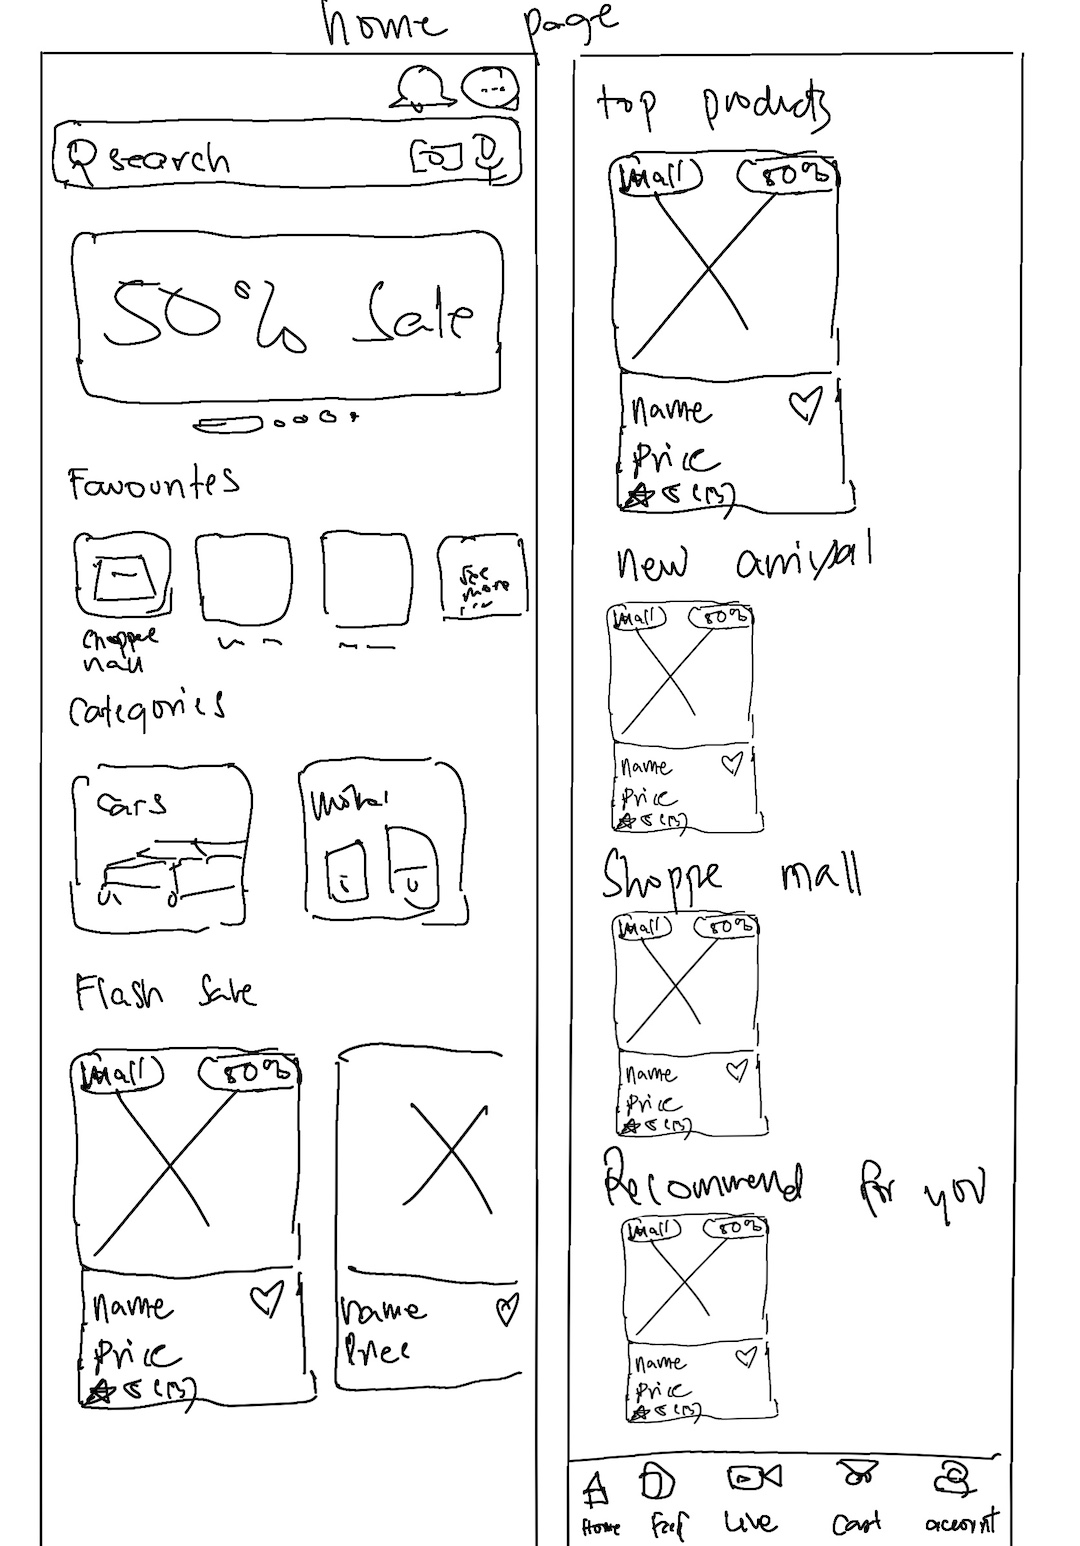 home page
search
50% Sale
Favourites
see
more
...
Shoppee
Mall
Categories
Cars
Flash Sale
Mall 50%
name
Price
★ 5 (13)
name
Price
top products
Mall 50%
name
Price
★ 5 (13)
new arrival
Mall 50%
name
Price
★ 5 (13)
Shoppe mall
Mall 50%
name
Price
★ 5 (13)
Recommend for you
Mall 50%
name
Price
★ 5 (13)
Home
Live
Cart
account